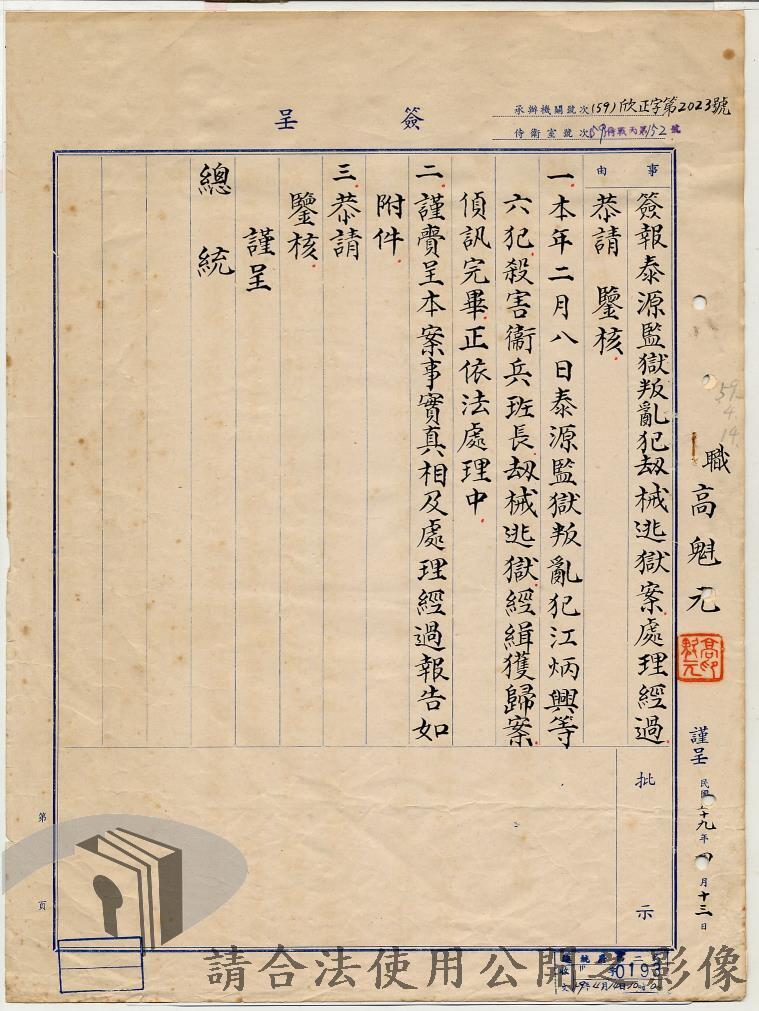 簽呈
承辦機關號次(59)欣正字第2023號
侍衛室號次59侍戰丙第152號
事由
簽報泰源監獄叛亂犯刼械逃獄案處理經過
恭請 鑒核
一本年二月八日泰源監獄叛亂犯江炳興等
六犯殺害衞兵班長刼械逃獄經緝獲歸案
偵訊完畢正依法處理中
二謹賫呈本案事實真相及處理經過報告如
附件
三恭請
鑒核
謹呈
總統
職高魁元
謹呈
民國五十九年四月十三日
59.4.14.
批示
第 頁
請合法使用公開之影像